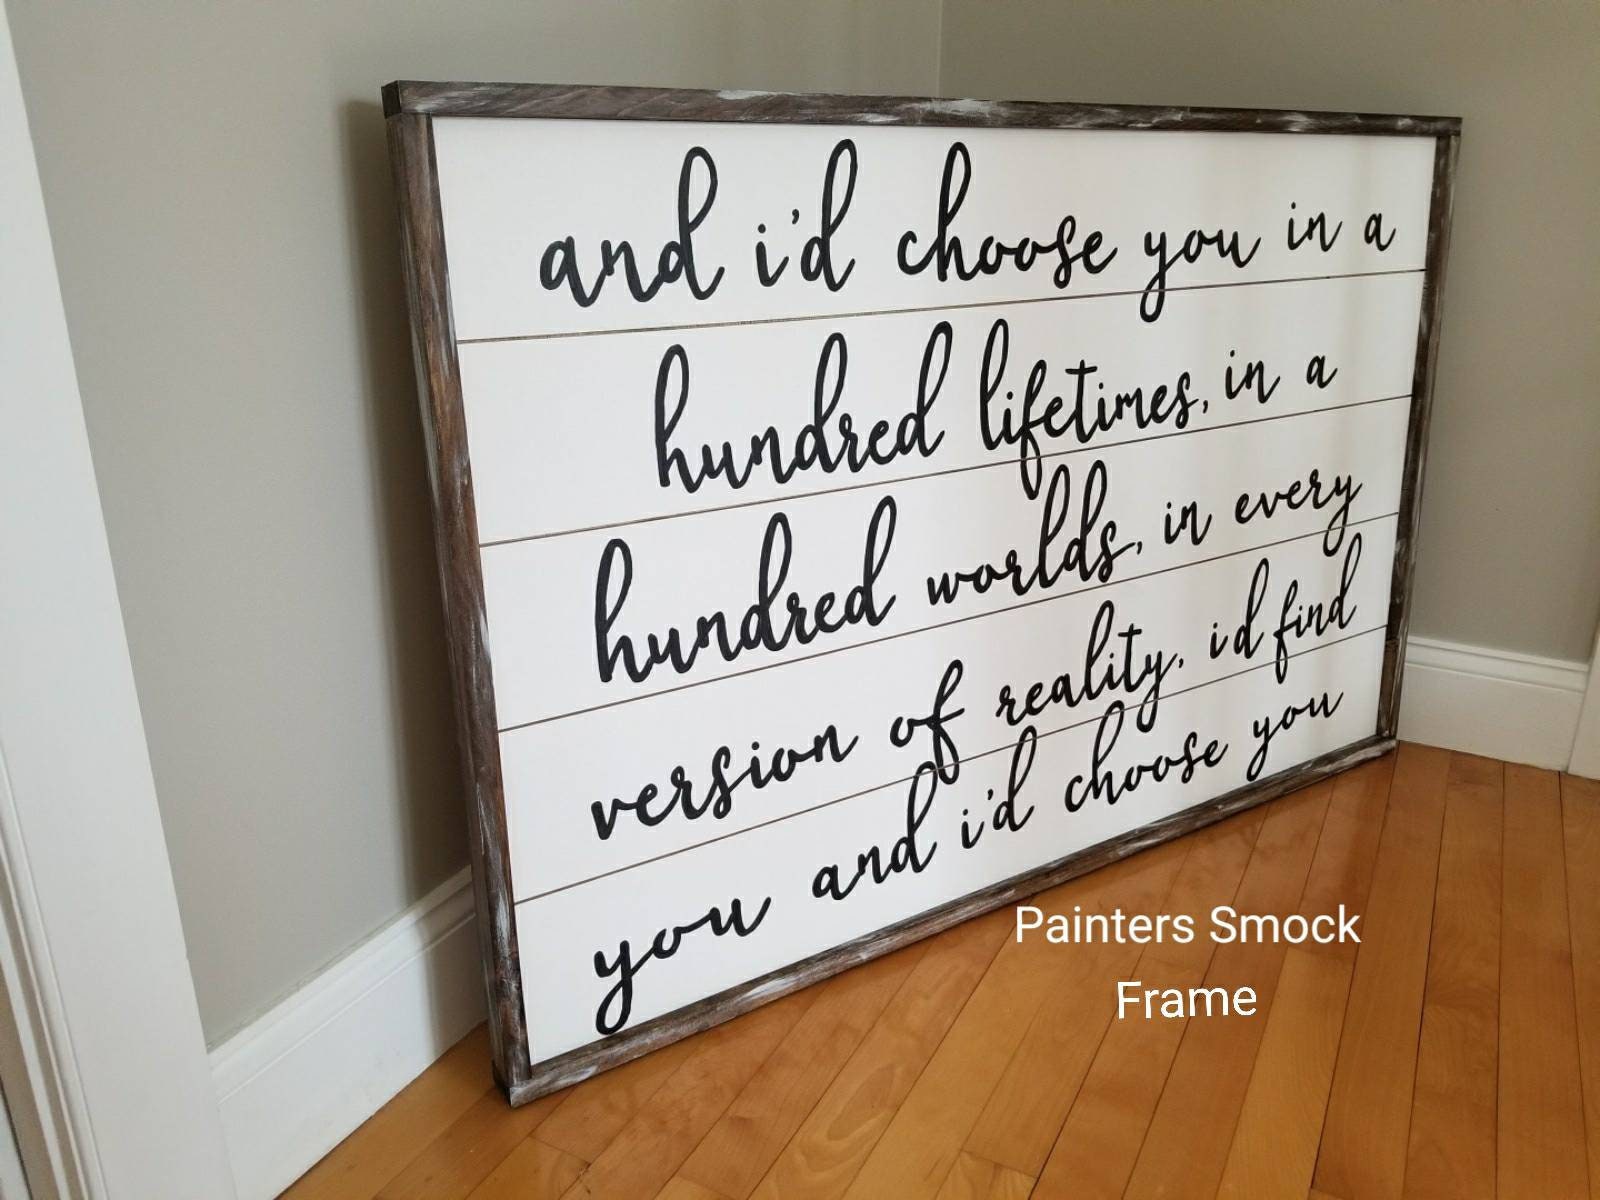 and i'd choose you in a
hundred lifetimes, in a
hundred worlds, in every
version of reality, id find
you and i'd choose you
Painters Smock
Frame